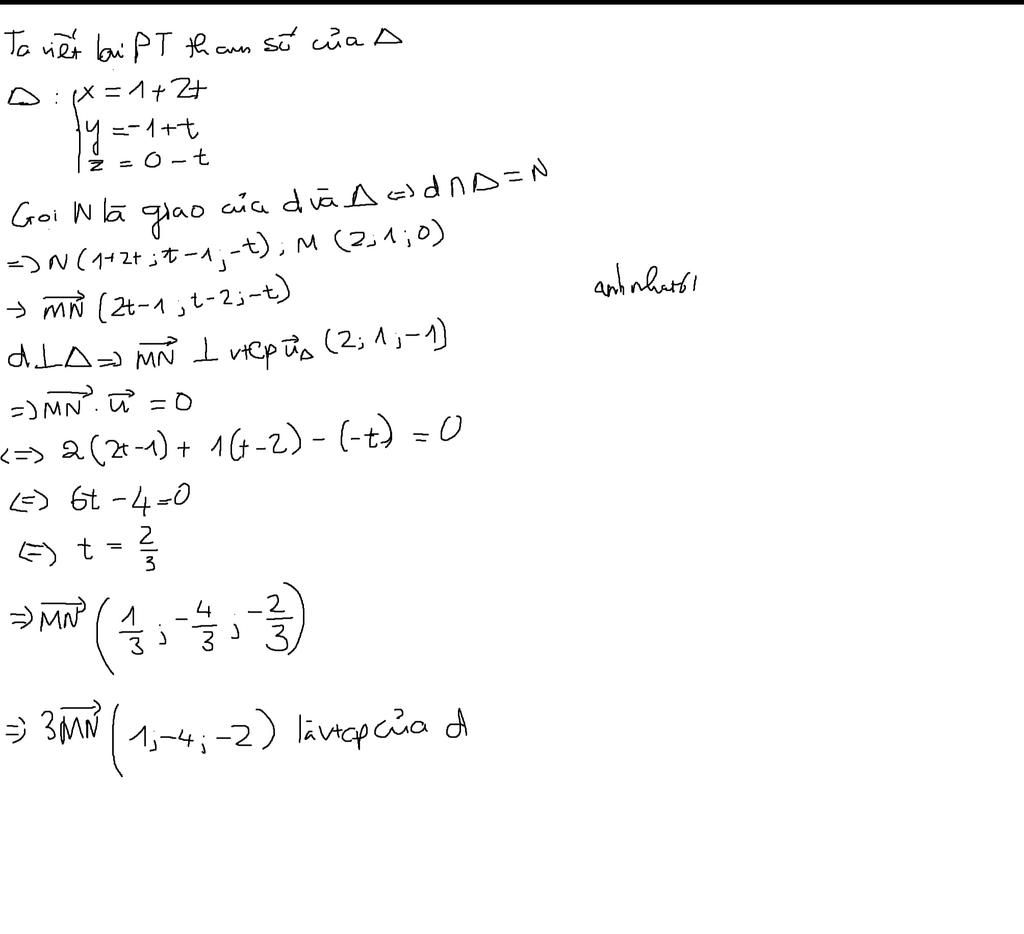 Ta viết lại PT tham số của Δ
Δ : { x = 1 + 2t
y = -1 + t
z = 0 - t
Gọi N là giao của d và Δ <=> d ∩ Δ = N
=> N (1+2t ; t-1 ; -t) ; M (2 ; 1 ; 0)
→ \overrightarrow{MN} (2t-1 ; t-2 ; -t)
anhnhat61
d ⊥ Δ => \overrightarrow{MN} ⊥ vtcp \vec{u}_Δ (2 ; 1 ; -1)
=> \overrightarrow{MN} . \vec{u} = 0
<=> 2(2t-1) + 1(t-2) - (-t) = 0
<=> 6t - 4 = 0
<=> t = \frac{2}{3}
=> \overrightarrow{MN} (\frac{1}{3} ; -\frac{4}{3} ; -\frac{2}{3})
=> 3\overrightarrow{MN} (1 ; -4 ; -2) là vtcp của d